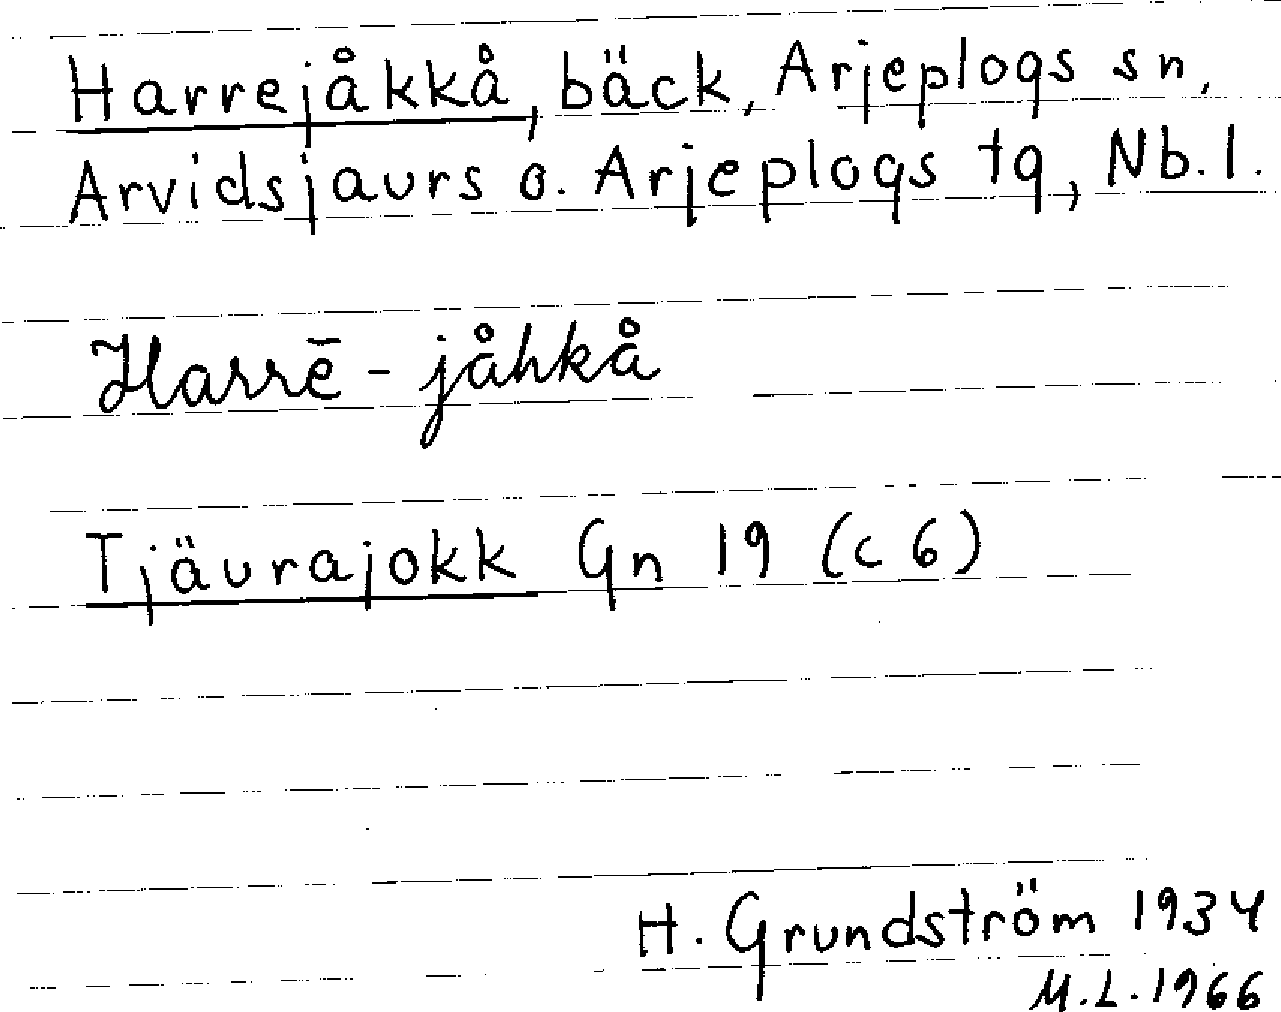 Harrejåkkå, bäck, Arjeplogs sn,
Arvidsjaurs o. Arjeplogs tg, Nb.l.
Harrē - jåhkå
Tjäurajokk Gn 19 (c 6)
H. Grundström 1934
M.L.1966